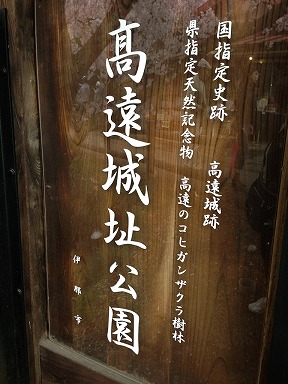 国指定史跡 高遠城跡
県指定天然記念物 高遠のコヒガンザクラ樹林
髙遠城址公園
伊那市